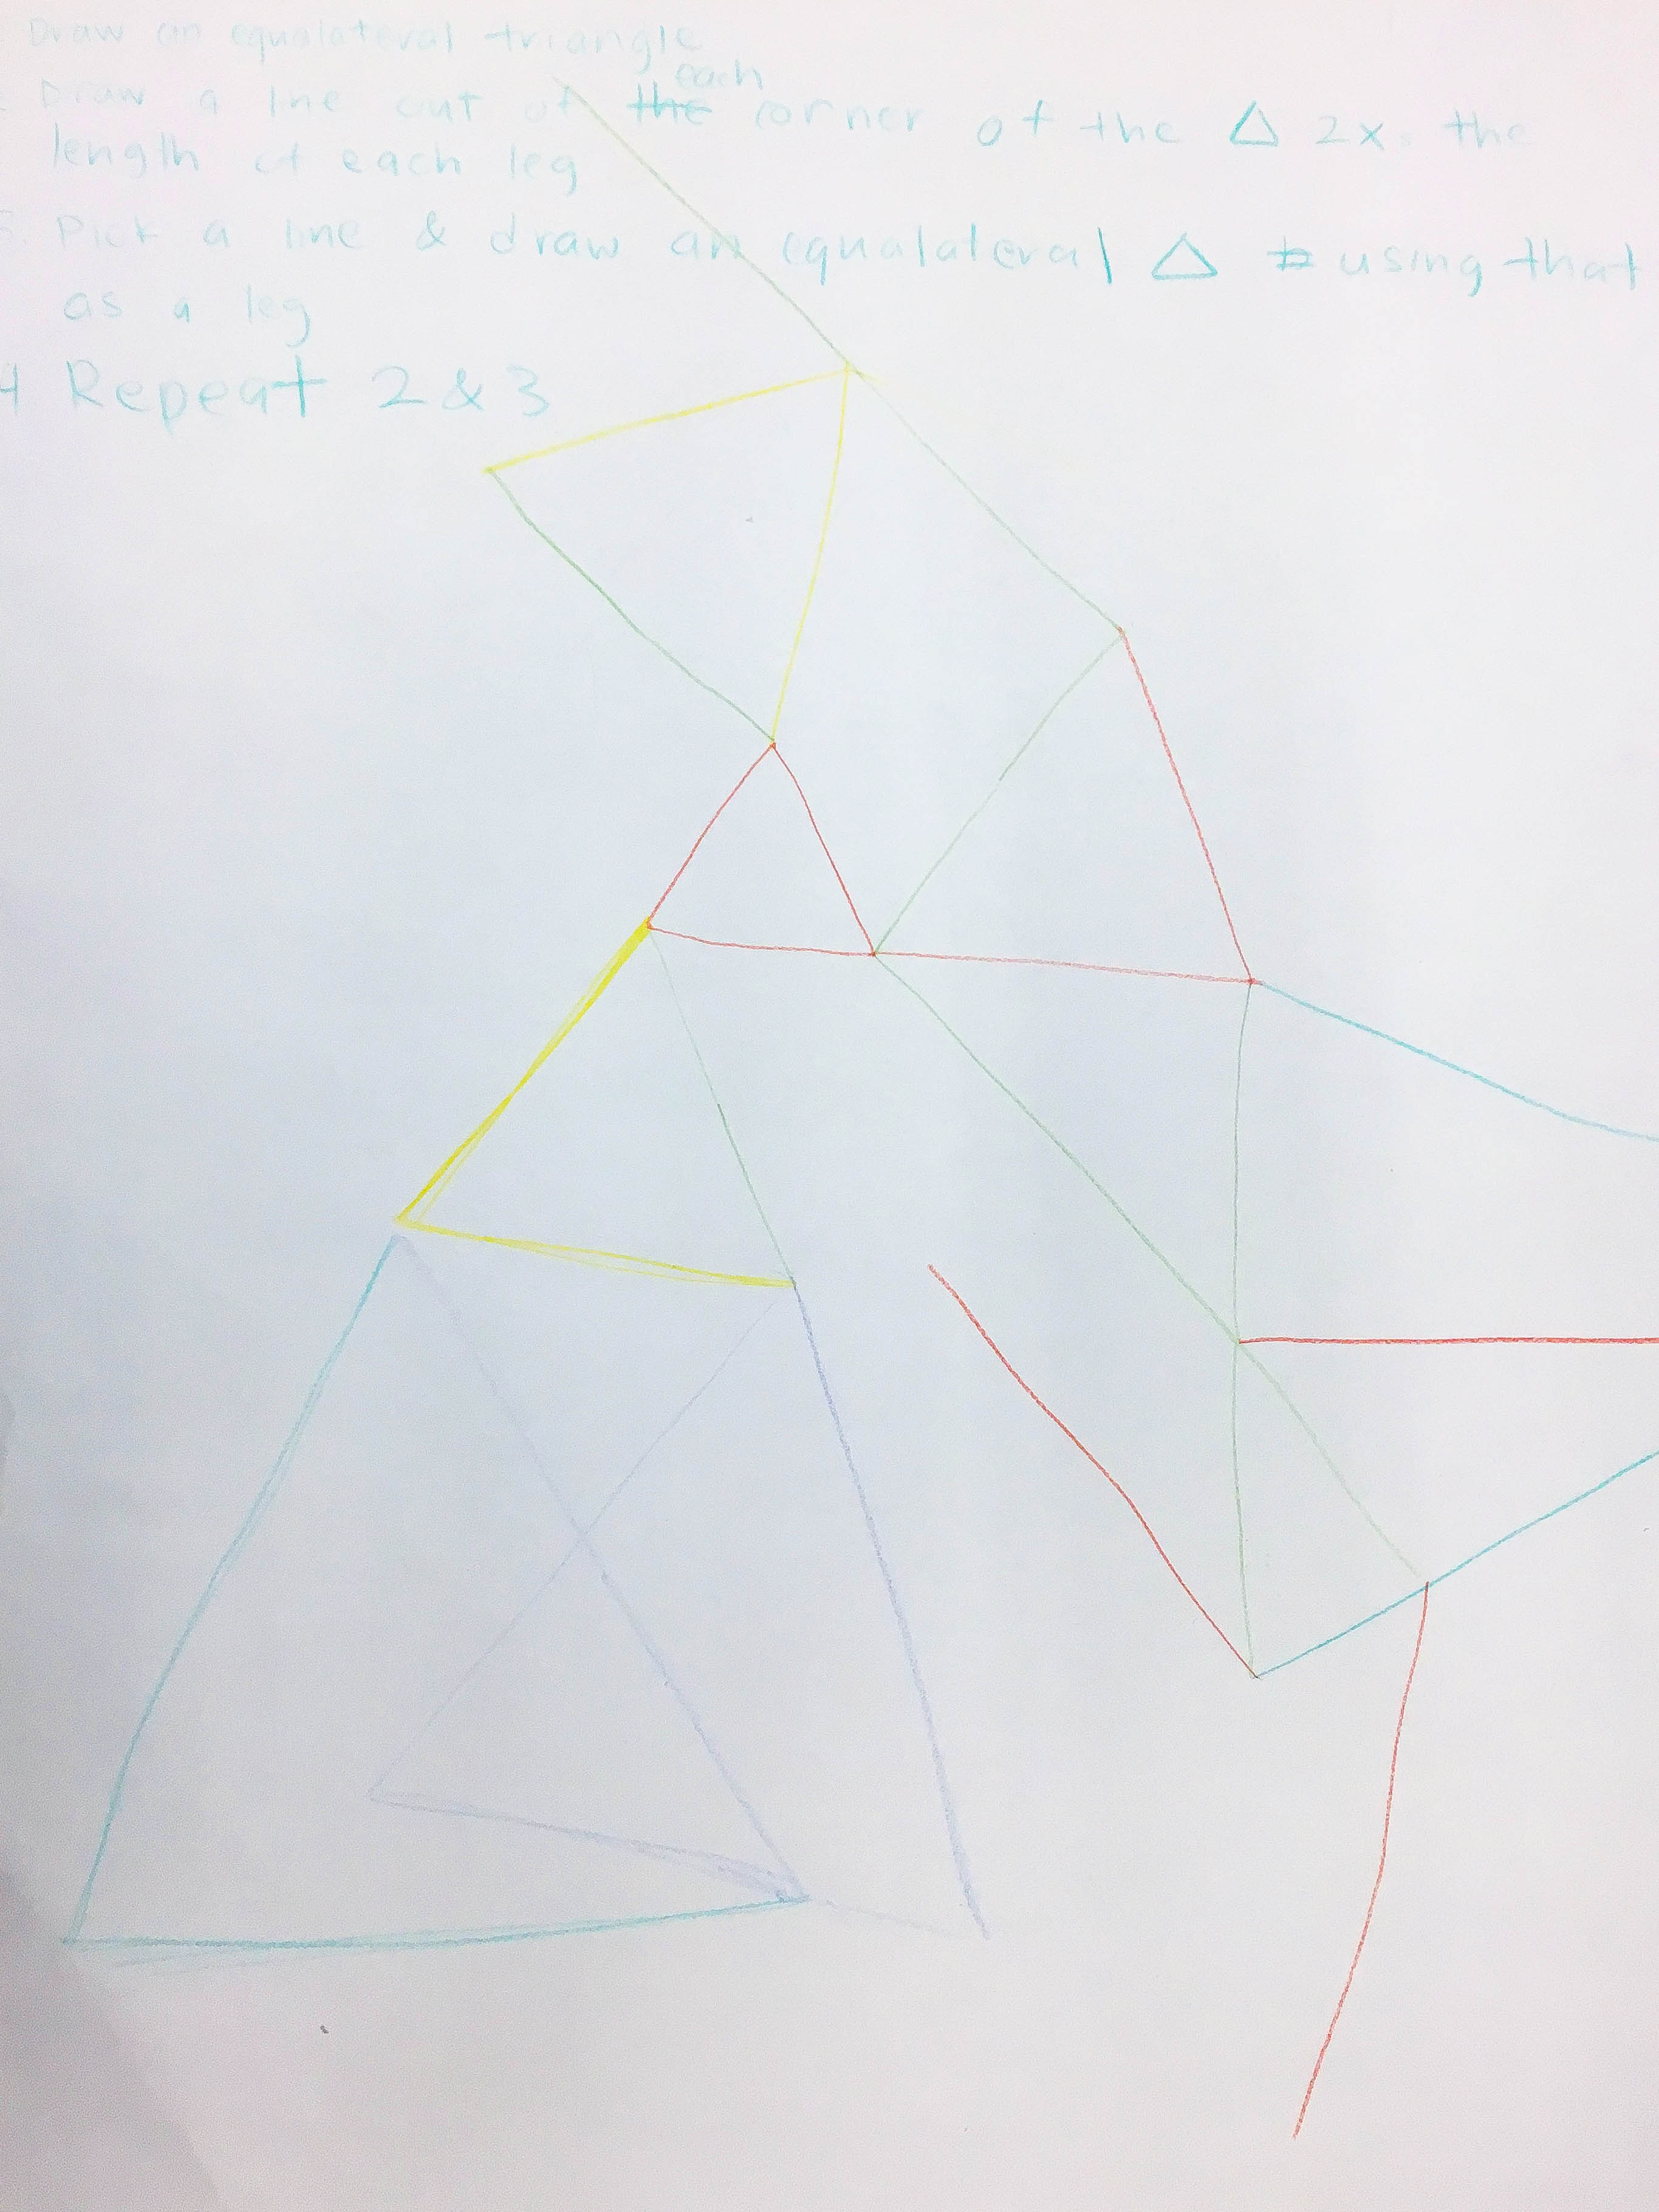 Draw an equalateral triangle
each
Draw a line out of the corner of the △ 2x the
length of each leg
Pick a line & draw an equalateral △ using that
as a leg
4 Repeat 2 & 3